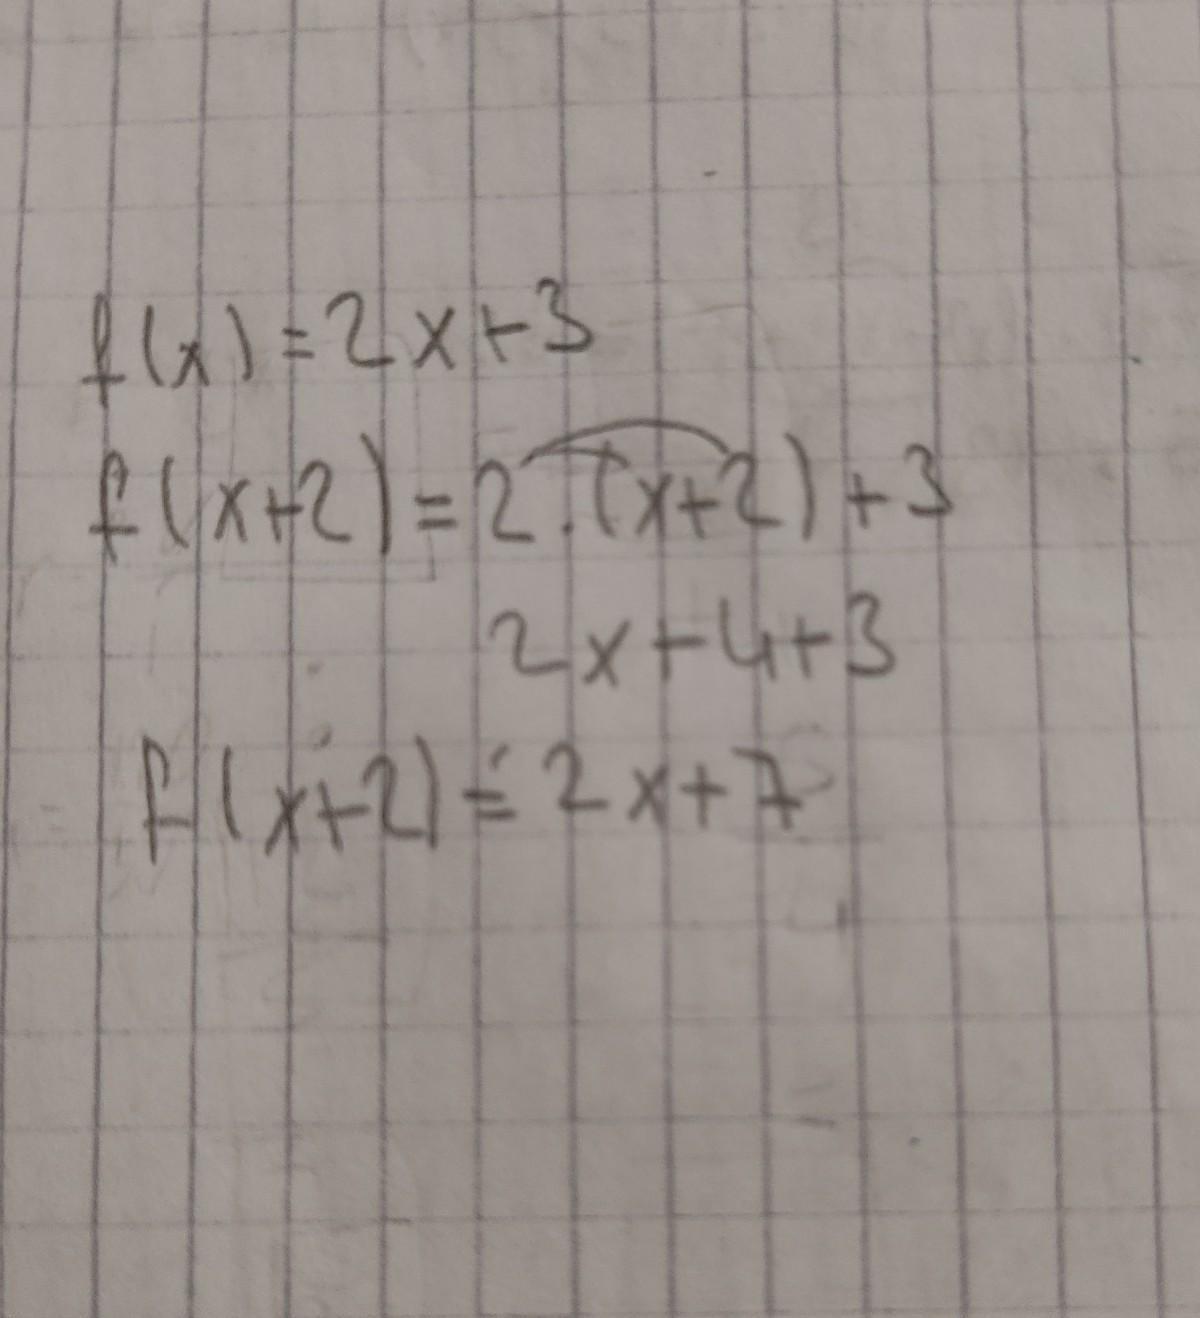 f(x)=2x+3
f(x+2)=2.(x+2)+3
2x+4+3
f(x+2)=2x+7